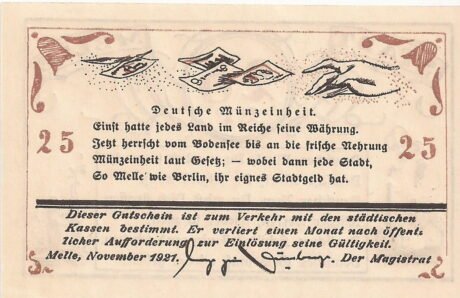 Deutsche Münzeinheit.
Einst hatte jedes Land im Reiche seine Währung.
Jetzt herrscht vom Bodensee bis an die frische Nehrung
25 Münzeinheit laut Gesetz; — wobei dann jede Stadt, 25
So Melle wie Berlin, ihr eignes Stadtgeld hat.
Dieser Gutschein ist zum Verkehr mit den städtischen
Kassen bestimmt. Er verliert einen Monat nach öffent-
licher Aufforderung zur Einlösung seine Gültigkeit.
Melle, November 1921. Der Magistrat